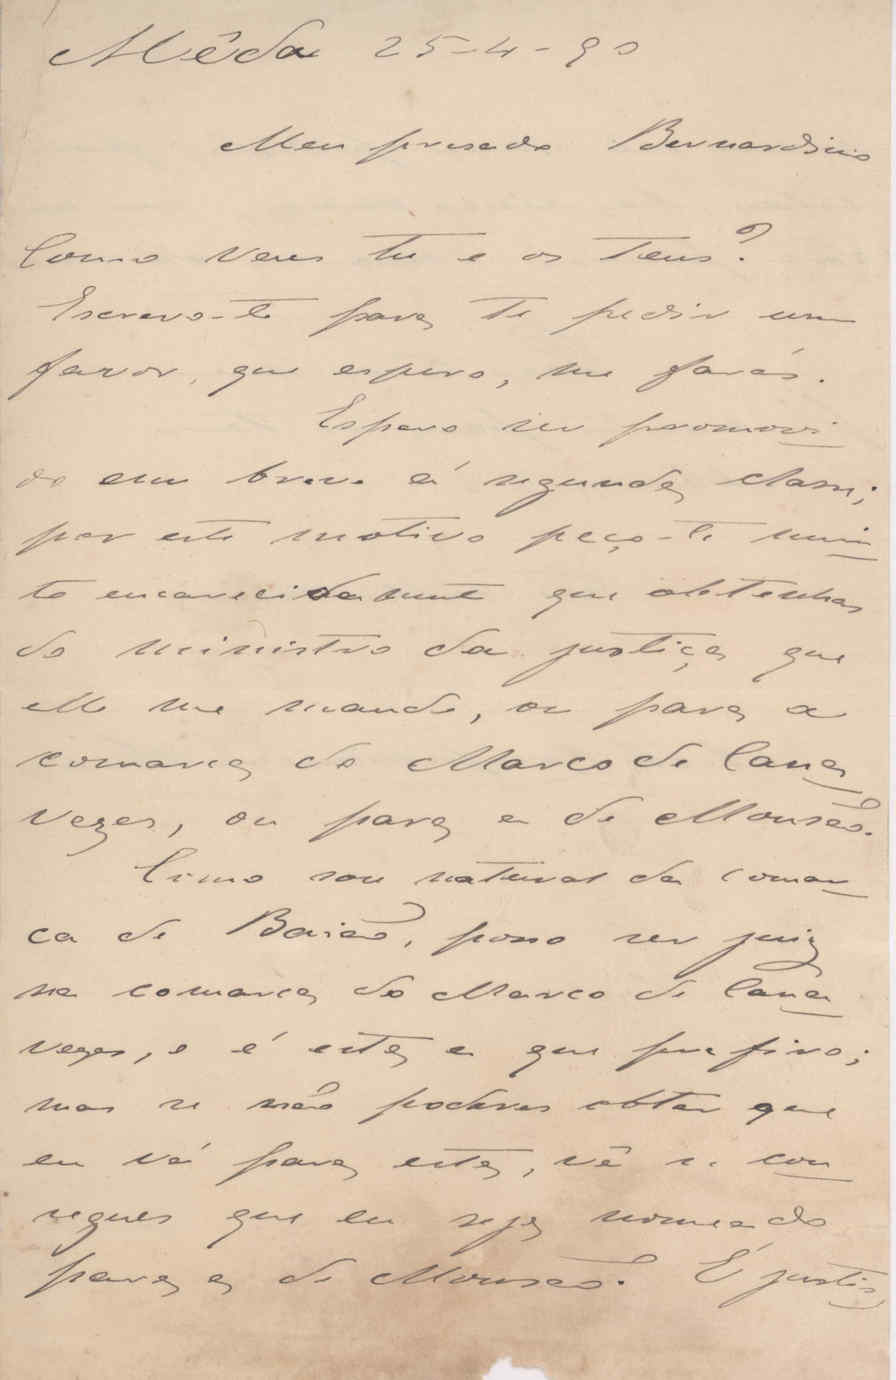 Mêda 25-4-90
Meu presado Bernardino
Como vens tu e os teus?
Escrevo-te para te pedir um
favor, que espero, me farás.
Espero ser promovi_
do em breve á segunda classe;
por este motivo peço-te mui_
to encarecidamente que obtenhas
do ministro da justiça que
elle me mande, ou para a
comarca do Marco de Cana_
vezes, ou para a de Monsão.
Como sou natural da comar_
ca de Baião, posso ser juiz
na comarca do Marco de Cana_
vezes, e é esta a que prefiro;
mas se não poderes obter que
eu vá para esta, vê se con_
segues que eu seja nomeado
para a de Monsão. É justis_